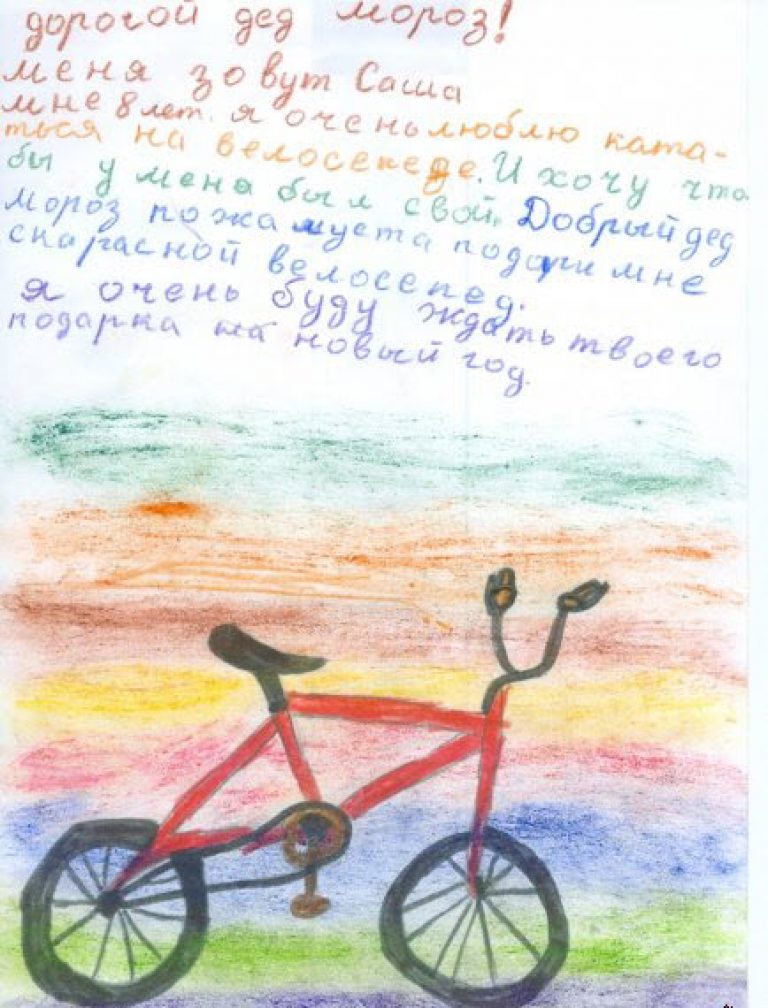 дорогой дед мороз!
меня зовут Саша
мне 8 лет. я очень люблю ката-
ться на велосепеде. И хочу что
бы у меня был свой. Добрый дед
мороз пожамуста подари мне
скарасной велосепед.
я очень буду ждать твоего
подарка на новый год.